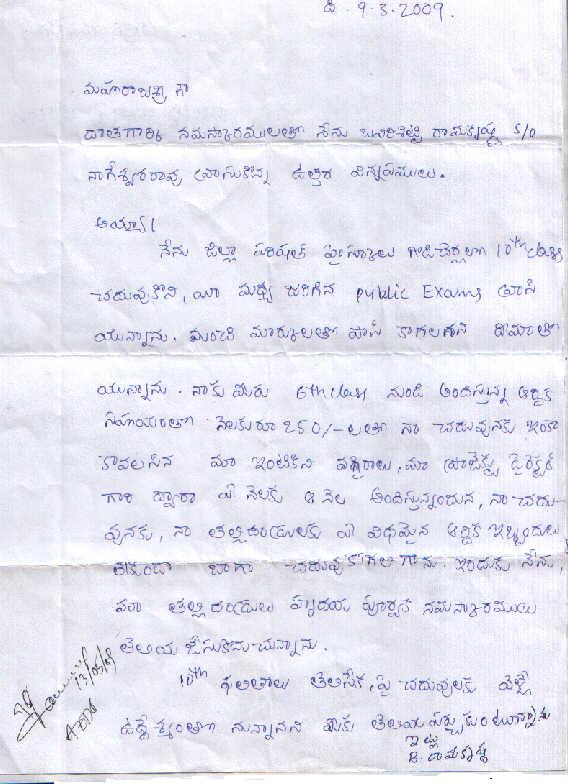 ది. 9-3-2009.
మహారాజశ్రీ గౌ
దాతగారికి నమస్కారములతో నేను రామకృష్ణ S/O
నాగేశ్వరరావు వ్రాసుకొన్న ఉత్తర విన్నపములు.
అయ్యా!
నేను జిల్లా పరిషత్ హైస్కూలు 10th class
చదువుకొని, యీ మధ్య జరిగిన public Exams వ్రాసి
యున్నాను. మంచి మార్కులతో పాస్ కాగలనని ధీమాతో
యున్నాను. నాకు మీరు 6th class నుండి అందిస్తున్న ఆర్థిక
సహాయంతో నెలకు రూ 250/-లతో నా చదువునకు ఇంకా
కావలసిన మా ఇంటికిని వస్త్రాలు, మా ప్రాజెక్టు డైరెక్టర్
గారి ద్వారా ఏ నెలకు ఆ నెల అందిస్తున్నందున, నా చదు-
వునకు, నా తల్లిదండ్రులకు ఏ విధమైన ఆర్థిక ఇబ్బందులు
లేకుండా బాగా చదువుకోగలిగాను. ఇందుకు నేను,
మా తల్లి దండ్రులు హృదయ పూర్వక నమస్కారములు
తెలియ జేసుకొనుచున్నాను.
10th ఫలితాలు తెలిసాక, పై చదువులకు వెళ్ళే
ఉద్దేశ్యంతో నున్నానని మీకు తెలియపర్చుకుంటున్నాను
ఇట్లు
B. రామకృష్ణ
13/05/09